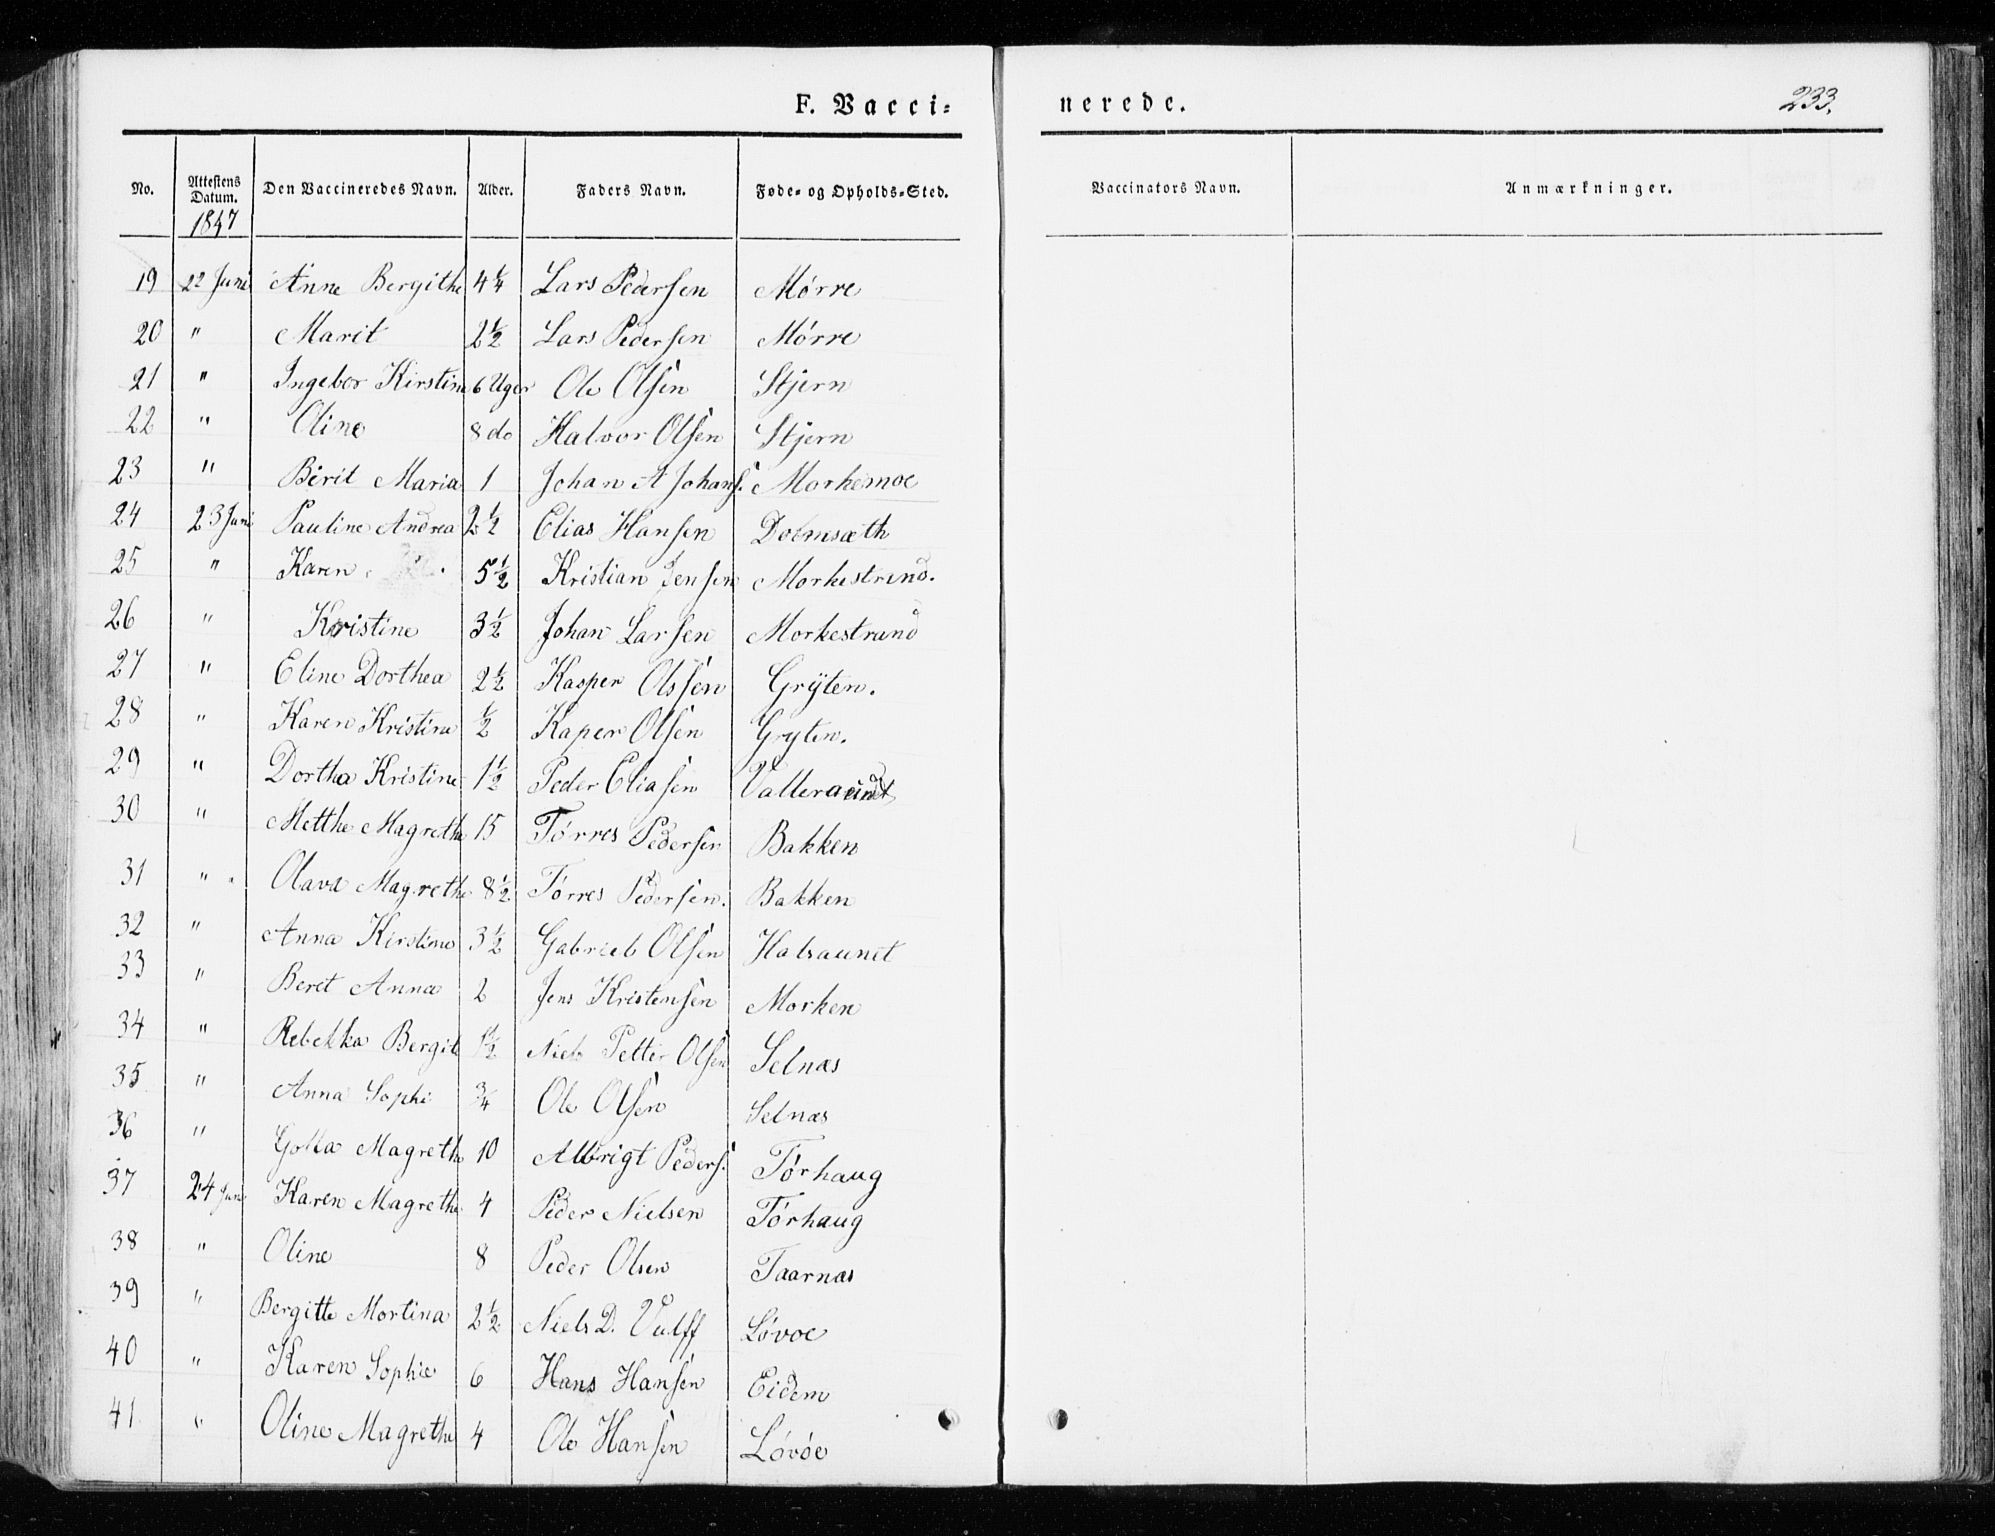 F. Vacci=
nerede.
233.
No. Attestens Datum. Den Vaccineredes Navn. Alder. Faders Navn. Føde- og Opholds-Sted. Vaccinators Navn. Anmærkninger.
1847
19 22 Juni Anne Bergithe 4¼ Lars Pedersen Mørre
20 " Marit 2½ Lars Pedersen Mørre
21 " Ingebor Kirstine 6 Uger Ole Olsen Stjern
22 " Oline 8 do Halvor Olsen Stjern
23 " Berit Maria 1 Johan A Johans. Morkemoe
24 23 Juni Pauline Andrea 2½ Elias Hansen
25 " Karen 5½ Kristian Jensen Morkestrand.
26 " Kristine 3½ Johan Larsen Morkestrand
27 " Eline Dorthea 2½ Kasper Olssen Grÿten.
28 " Karen Kristine ½ Kaper Olsen Gryten.
29 " Dorthea Kristine 1½ Peder Eliasen
30 " Metthe Magrethe 15 Tørres Pedersen Bakken
31 " Olava Magrethe 8½ Tørres Pedersen. Bakken
32 " Anna Kirstine 3½ Gabriel Olsen Halsaunet
33 " Beret Anna 2 Jens Kristensen Morken
34 " Rebekka Bergit 1½ Niels Petter Olsen Selnæs
35 " Anna Sophi ¾ Ole Olsen Selnæs
36 " Golla Magrethe 10 Albrigt Peders. Tørhaug
37 24 Juni Karen Magrethe 4 Peder Nielsen Tørhaug
38 " Oline 8 Peder Olsen Taarnæs
39 " Bergitte Mortina 2½ Niels D. Vulff Løvøe
40 " Karen Sophie 6 Hans Hansen Eidem
41 " Oline Magrethe 4 Ole Hansen Løvøe